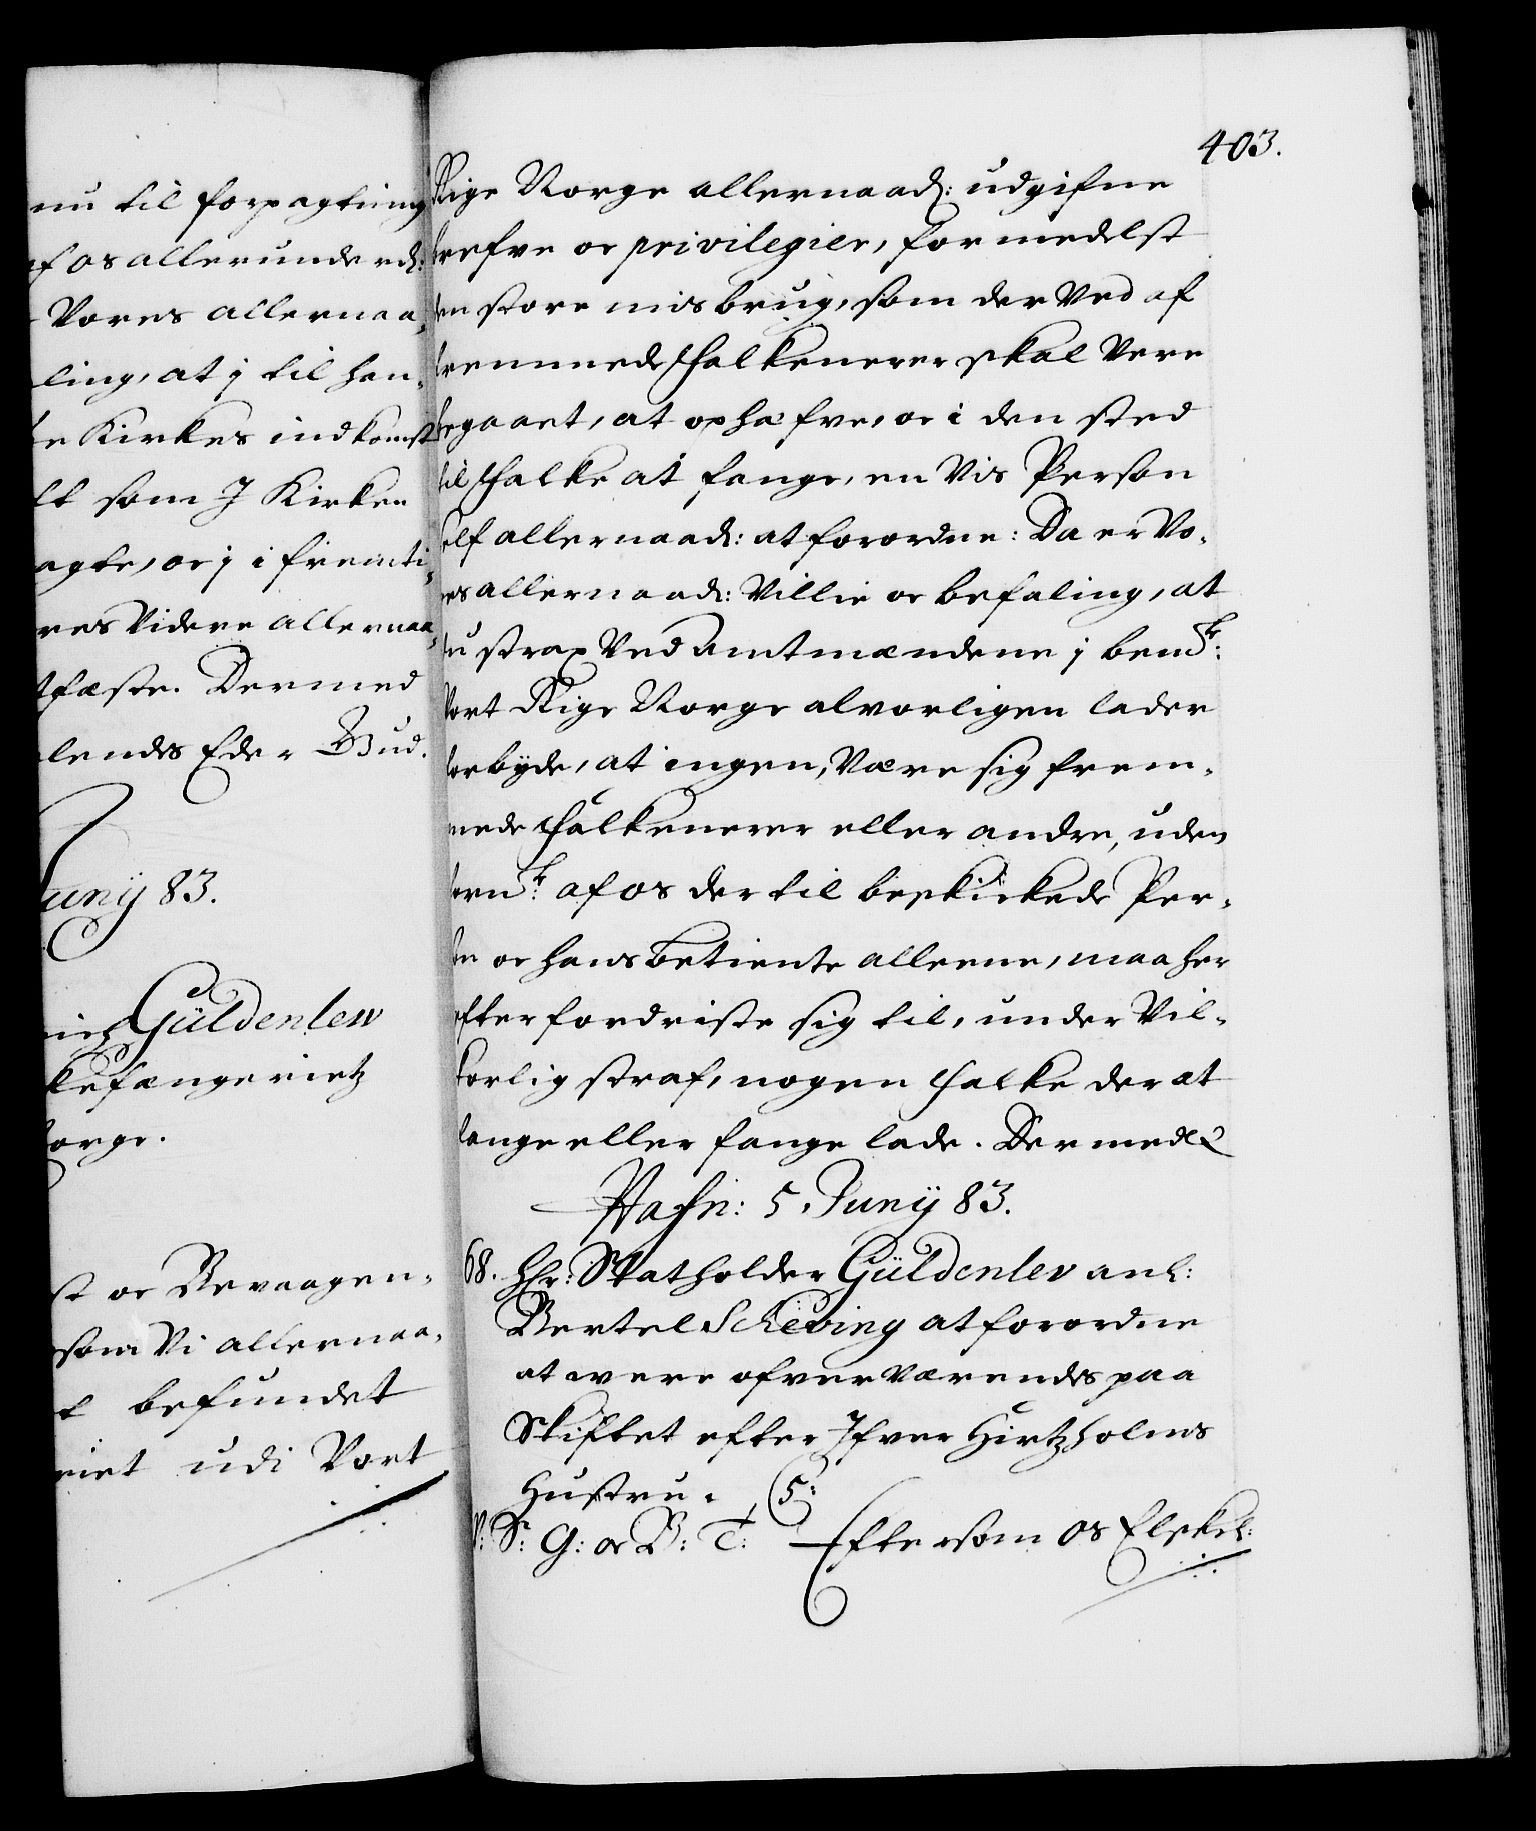 nu til forpagtning
af os allerunderd:
Vores allernaa-
ling, at j til han-
Kirkes indkomst
som J Kirken
agte, oc j i fremti-
res Videre allernaa-
fæste. Dermed
lendes Eder Gud.
uny 83.
Güldenlew
kefangerietz
orge.
st oc Bevaagen-
som Vi allernaa-
t befundet
riet udi Vort
403.
Rige Norge allernaad: udgifne
brefve oc privilegier, formedelst
den store misbrug, som der Ved af
fremmede Falkenerer skal Vere
begaaet, at ophæfve, oc i den sted
til Falke at fange, en Vis Person
self allernaad: at forordne: Da er Vo-
res allernaad: Villie oc befaling, at
du strax Ved Amtmændene j bemte:
Vort Rige Norge alvorligen lader
forbyde, at ingen, Være sig frem-
mede Falkenerer eller andre, uden
bemte: af os der til beskickede Per-
son oc hans betiente alleene, maa her
efter fordriste sig til, under Vil-
korlig straf, nogen Falke der at
fange eller fange lade. Dermed &
Hafn: 5. Juny 83.
68. Hr: Statholder Güldenlev anl:
Bertel Scheving at forordne
at were ofverværendes paa
Skiftet efter Ifver Hirtzholms
Hustru. (5:
V: S: G: oc B: T: Eftersom os Elskel: